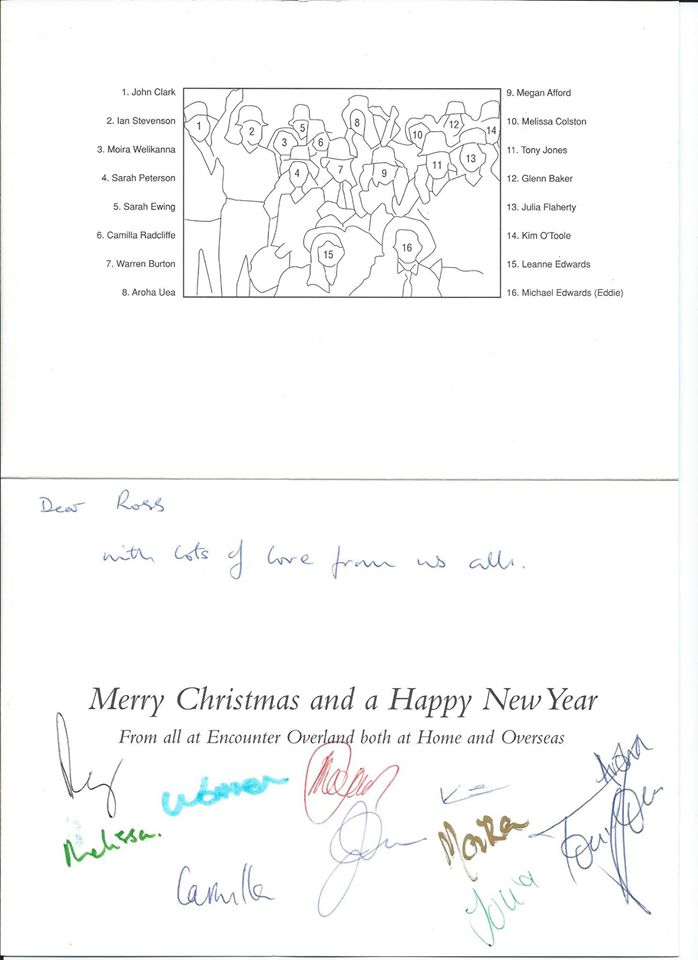 1. John Clark
2. Ian Stevenson
3. Moira Welikanna
4. Sarah Peterson
5. Sarah Ewing
6. Camilla Radcliffe
7. Warren Burton
8. Aroha Uea
1
2
3
4
5
6
7
8
9
10
11
12
13
14
15
16
9. Megan Afford
10. Melissa Colston
11. Tony Jones
12. Glenn Baker
13. Julia Flaherty
14. Kim O'Toole
15. Leanne Edwards
16. Michael Edwards (Eddie)
Dear Ross
with lots of love from us all.
Merry Christmas and a Happy New Year
From all at Encounter Overland both at Home and Overseas
Aroha
Warren
Megan
Melissa.
Moira
Tony Jones
Camilla
John
Julia